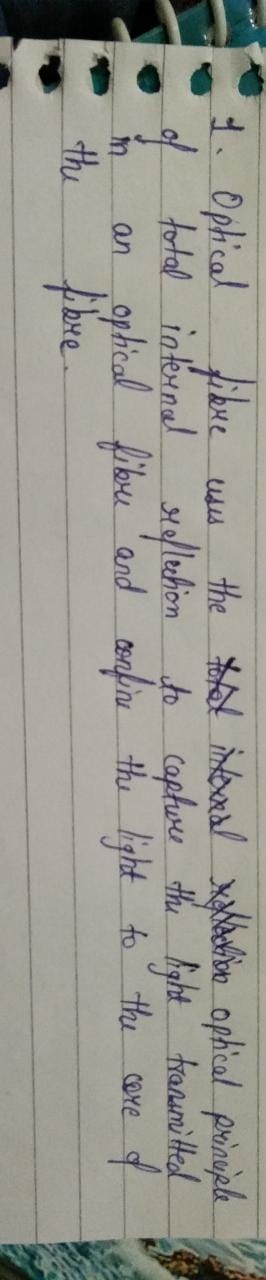 1. Optical fibre uses the total internal reflection optical principle
of total internal reflection to capture the light transmitted
in an optical fibre and confine the light to the core of
the fibre.